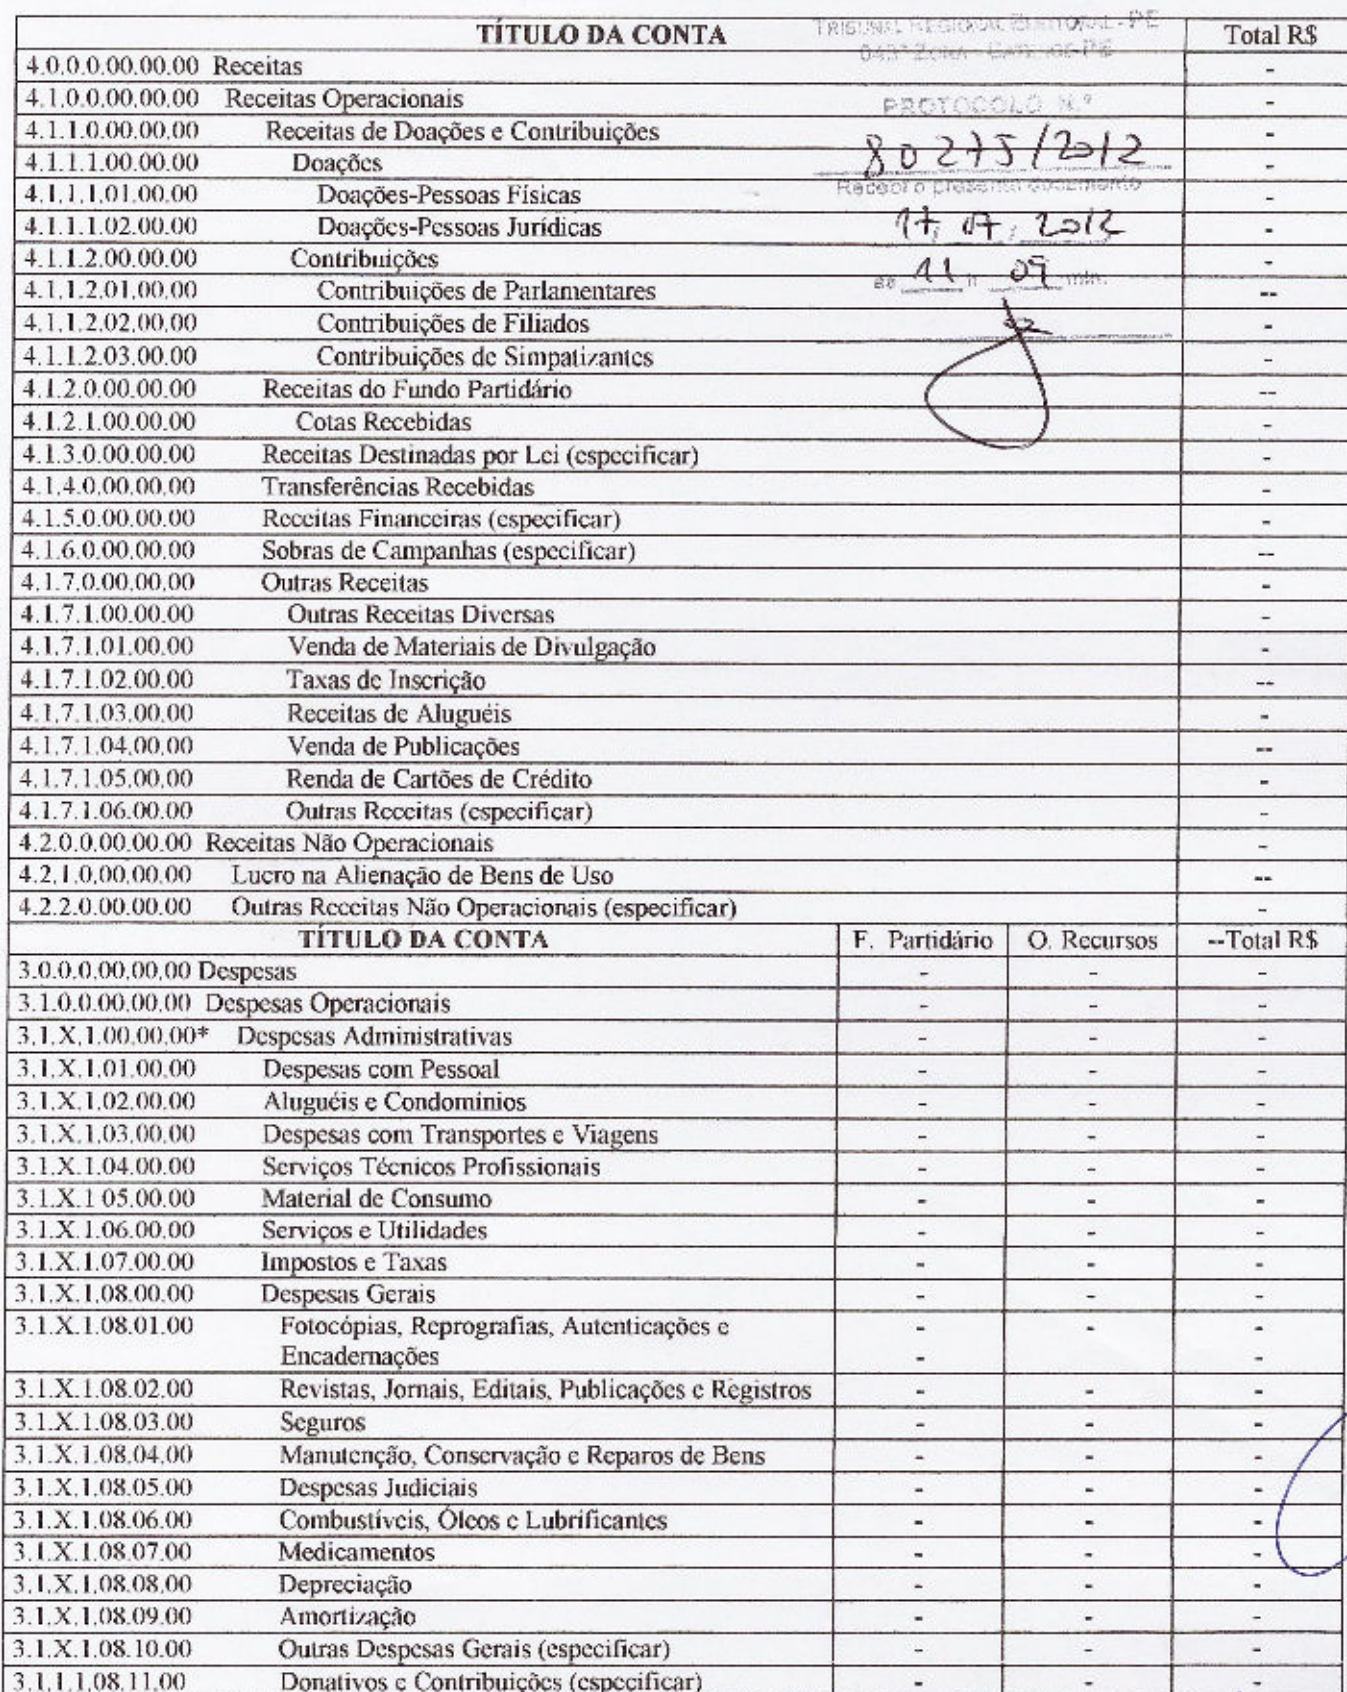 TÍTULO DA CONTA Total R$
TRIBUNAL REGIONAL ELEITORAL - PE
4.0.0.0.00.00.00 Receitas -
4.1.0.0.00.00.00 Receitas Operacionais -
PROTOCOLO N.º
4.1.1.0.00.00.00 Receitas de Doações e Contribuições -
80275/2012
4.1.1.1.00.00.00 Doações -
Recebi o presente documento
4.1.1.1.01.00.00 Doações-Pessoas Físicas -
17, 07, 2012
4.1.1.1.02.00.00 Doações-Pessoas Jurídicas -
4.1.1.2.00.00.00 Contribuições -
às 11 h 09 min.
4.1.1.2.01.00.00 Contribuições de Parlamentares --
4.1.1.2.02.00.00 Contribuições de Filiados -
4.1.1.2.03.00.00 Contribuições de Simpatizantes -
4.1.2.0.00.00.00 Receitas do Fundo Partidário --
4.1.2.1.00.00.00 Cotas Recebidas -
4.1.3.0.00.00.00 Receitas Destinadas por Lei (especificar) -
4.1.4.0.00.00.00 Transferências Recebidas -
4.1.5.0.00.00.00 Receitas Financeiras (especificar) -
4.1.6.0.00.00.00 Sobras de Campanhas (especificar) --
4.1.7.0.00.00.00 Outras Receitas -
4.1.7.1.00.00.00 Outras Receitas Diversas -
4.1.7.1.01.00.00 Venda de Materiais de Divulgação -
4.1.7.1.02.00.00 Taxas de Inscrição --
4.1.7.1.03.00.00 Receitas de Aluguéis -
4.1.7.1.04.00.00 Venda de Publicações --
4.1.7.1.05.00.00 Renda de Cartões de Crédito -
4.1.7.1.06.00.00 Outras Receitas (especificar) -
4.2.0.0.00.00.00 Receitas Não Operacionais -
4.2.1.0.00.00.00 Lucro na Alienação de Bens de Uso --
4.2.2.0.00.00.00 Outras Receitas Não Operacionais (especificar) -
TÍTULO DA CONTA F. Partidário O. Recursos --Total R$
3.0.0.0.00.00.00 Despesas - - -
3.1.0.0.00.00.00 Despesas Operacionais - - -
3.1.X.1.00.00.00* Despesas Administrativas - - -
3.1.X.1.01.00.00 Despesas com Pessoal - - -
3.1.X.1.02.00.00 Aluguéis e Condomínios - - -
3.1.X.1.03.00.00 Despesas com Transportes e Viagens - - -
3.1.X.1.04.00.00 Serviços Técnicos Profissionais - - -
3.1.X.1 05.00.00 Material de Consumo - - -
3.1.X.1.06.00.00 Serviços e Utilidades - - -
3.1.X.1.07.00.00 Impostos e Taxas - - -
3.1.X.1.08.00.00 Despesas Gerais - - -
3.1.X.1.08.01.00 Fotocópias, Reprografias, Autenticações e - - -
Encadernações - - -
3.1.X.1.08.02.00 Revistas, Jornais, Editais, Publicações e Registros - - -
3.1.X.1.08.03.00 Seguros - - -
3.1.X.1.08.04.00 Manutenção, Conservação e Reparos de Bens - - -
3.1.X.1.08.05.00 Despesas Judiciais - - -
3.1.X.1.08.06.00 Combustíveis, Óleos e Lubrificantes - - -
3.1.X.1.08.07.00 Medicamentos - - -
3.1.X.1.08.08.00 Depreciação - - -
3.1.X.1.08.09.00 Amortização - - -
3.1.X.1.08.10.00 Outras Despesas Gerais (especificar) - - -
3.1.1.1.08.11.00 Donativos e Contribuições (especificar) - - -